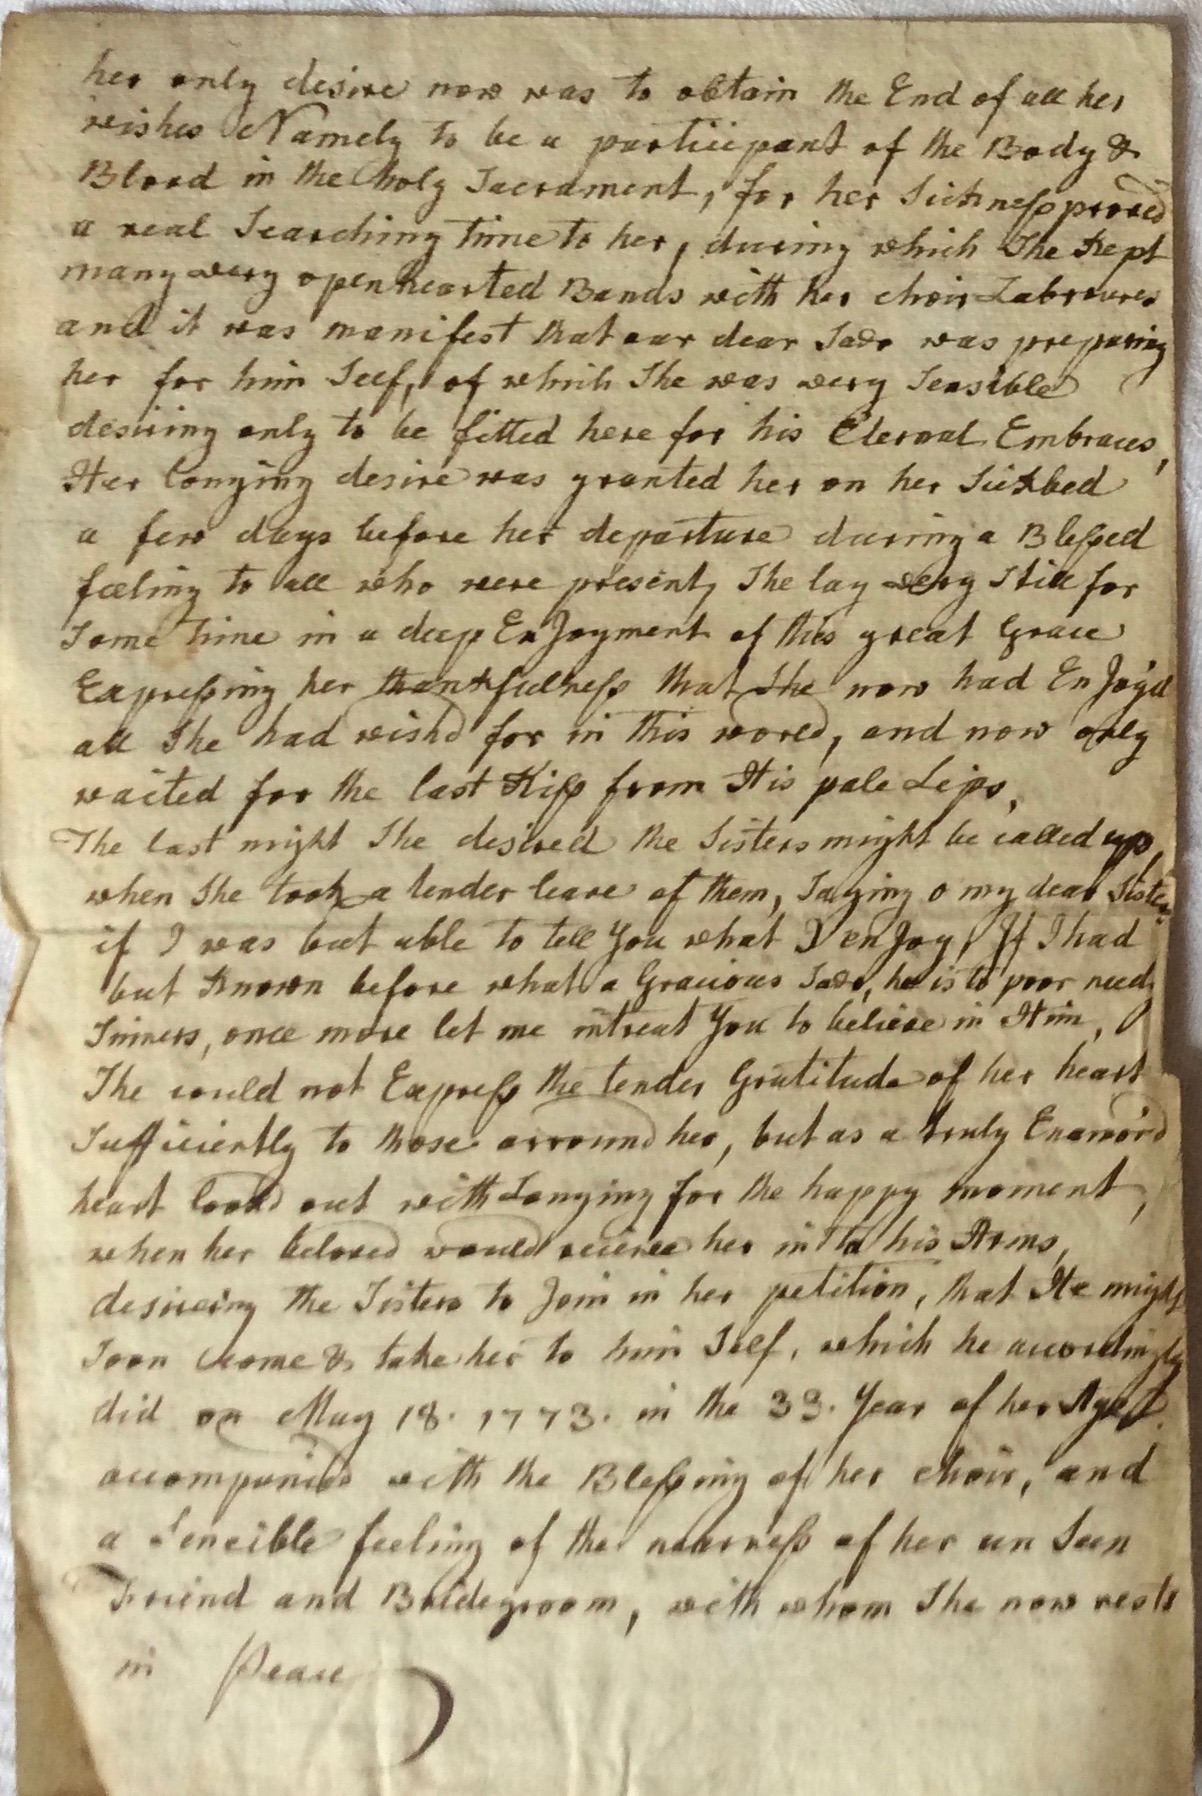 her only desire now was to obtain the End of all her
wishes Namely to be a participant of the Body &
Blood in the holy Sacrament, for her Sickneſs proved
a real Searching time to her, during which She Kept
many very openhearted Bands with her choir Labourers
and it was manifest that our dear Savr was preparing
her for him Self, of which She was very Sensible
desiring only to be fitted here for his Eternal Embraces,
Her longing desire was granted her on her Sickbed
a few days before her departure during a Bleſsed
feeling to all who were present, She lay very Still for
Some time in a deep EnJoyment of this great Grace
Expreſsing her thankfullneſs that She now had EnJoy'd
all She had wishd for in this world, and now only
waited for the last Kiſs from His pale Lips,
The last night She desired the Sisters might be called up,
when She took a tender leave of them, Saying o my dear Sisters
if I was but able to tell You what I enJoy, If I had
but Known before what a Gracious Savr, he is to poor needy
Sinners, once more let me intreat You to believe in Him,
She could not Expreſs the tender Gratitude of her heart
Sufficiently to those arround her, but as a truly Enamor'd
heart lookd out with Longing for the happy moment,
when her beloved would receive her in to his Arms,
desireing the Sisters to Join in her petition, that He might
Soon come & take her to him Self, which he accordingly
did on May 18. 1773. in the 33. Year of her Age
accompanied with the Bleſsing of her choir, and
a Sencible feeling of the nearneſs of her un Seen
Friend and Bridegroom, with whom She now rests
in Peace